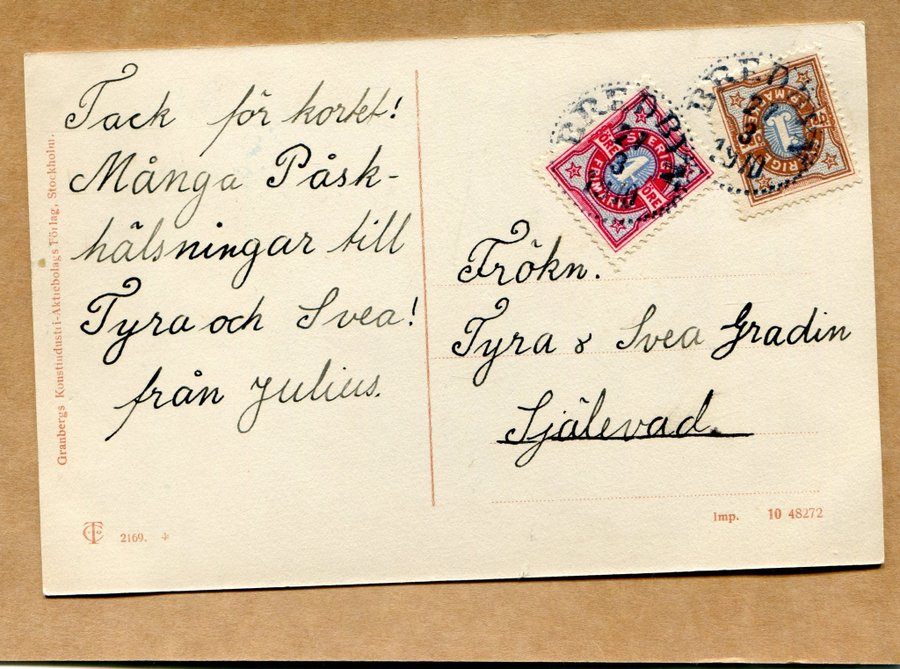 Tack för kortet!
Många Påsk-
hälsningar till
Tyra och Svea!
från Julius.
Frökn.
Tyra & Svea Gradin
Själevad.
Granbergs Konstindustri-Aktiebolags Förlag, Stockholm.
2169.
Imp. 10 48272
BREDBYN
3
SVERIGE
FRIMÄRKE
ÖRE
ÖRE
BREDBYN
3
1910
SVERIGE
FRIMÄRKE
1